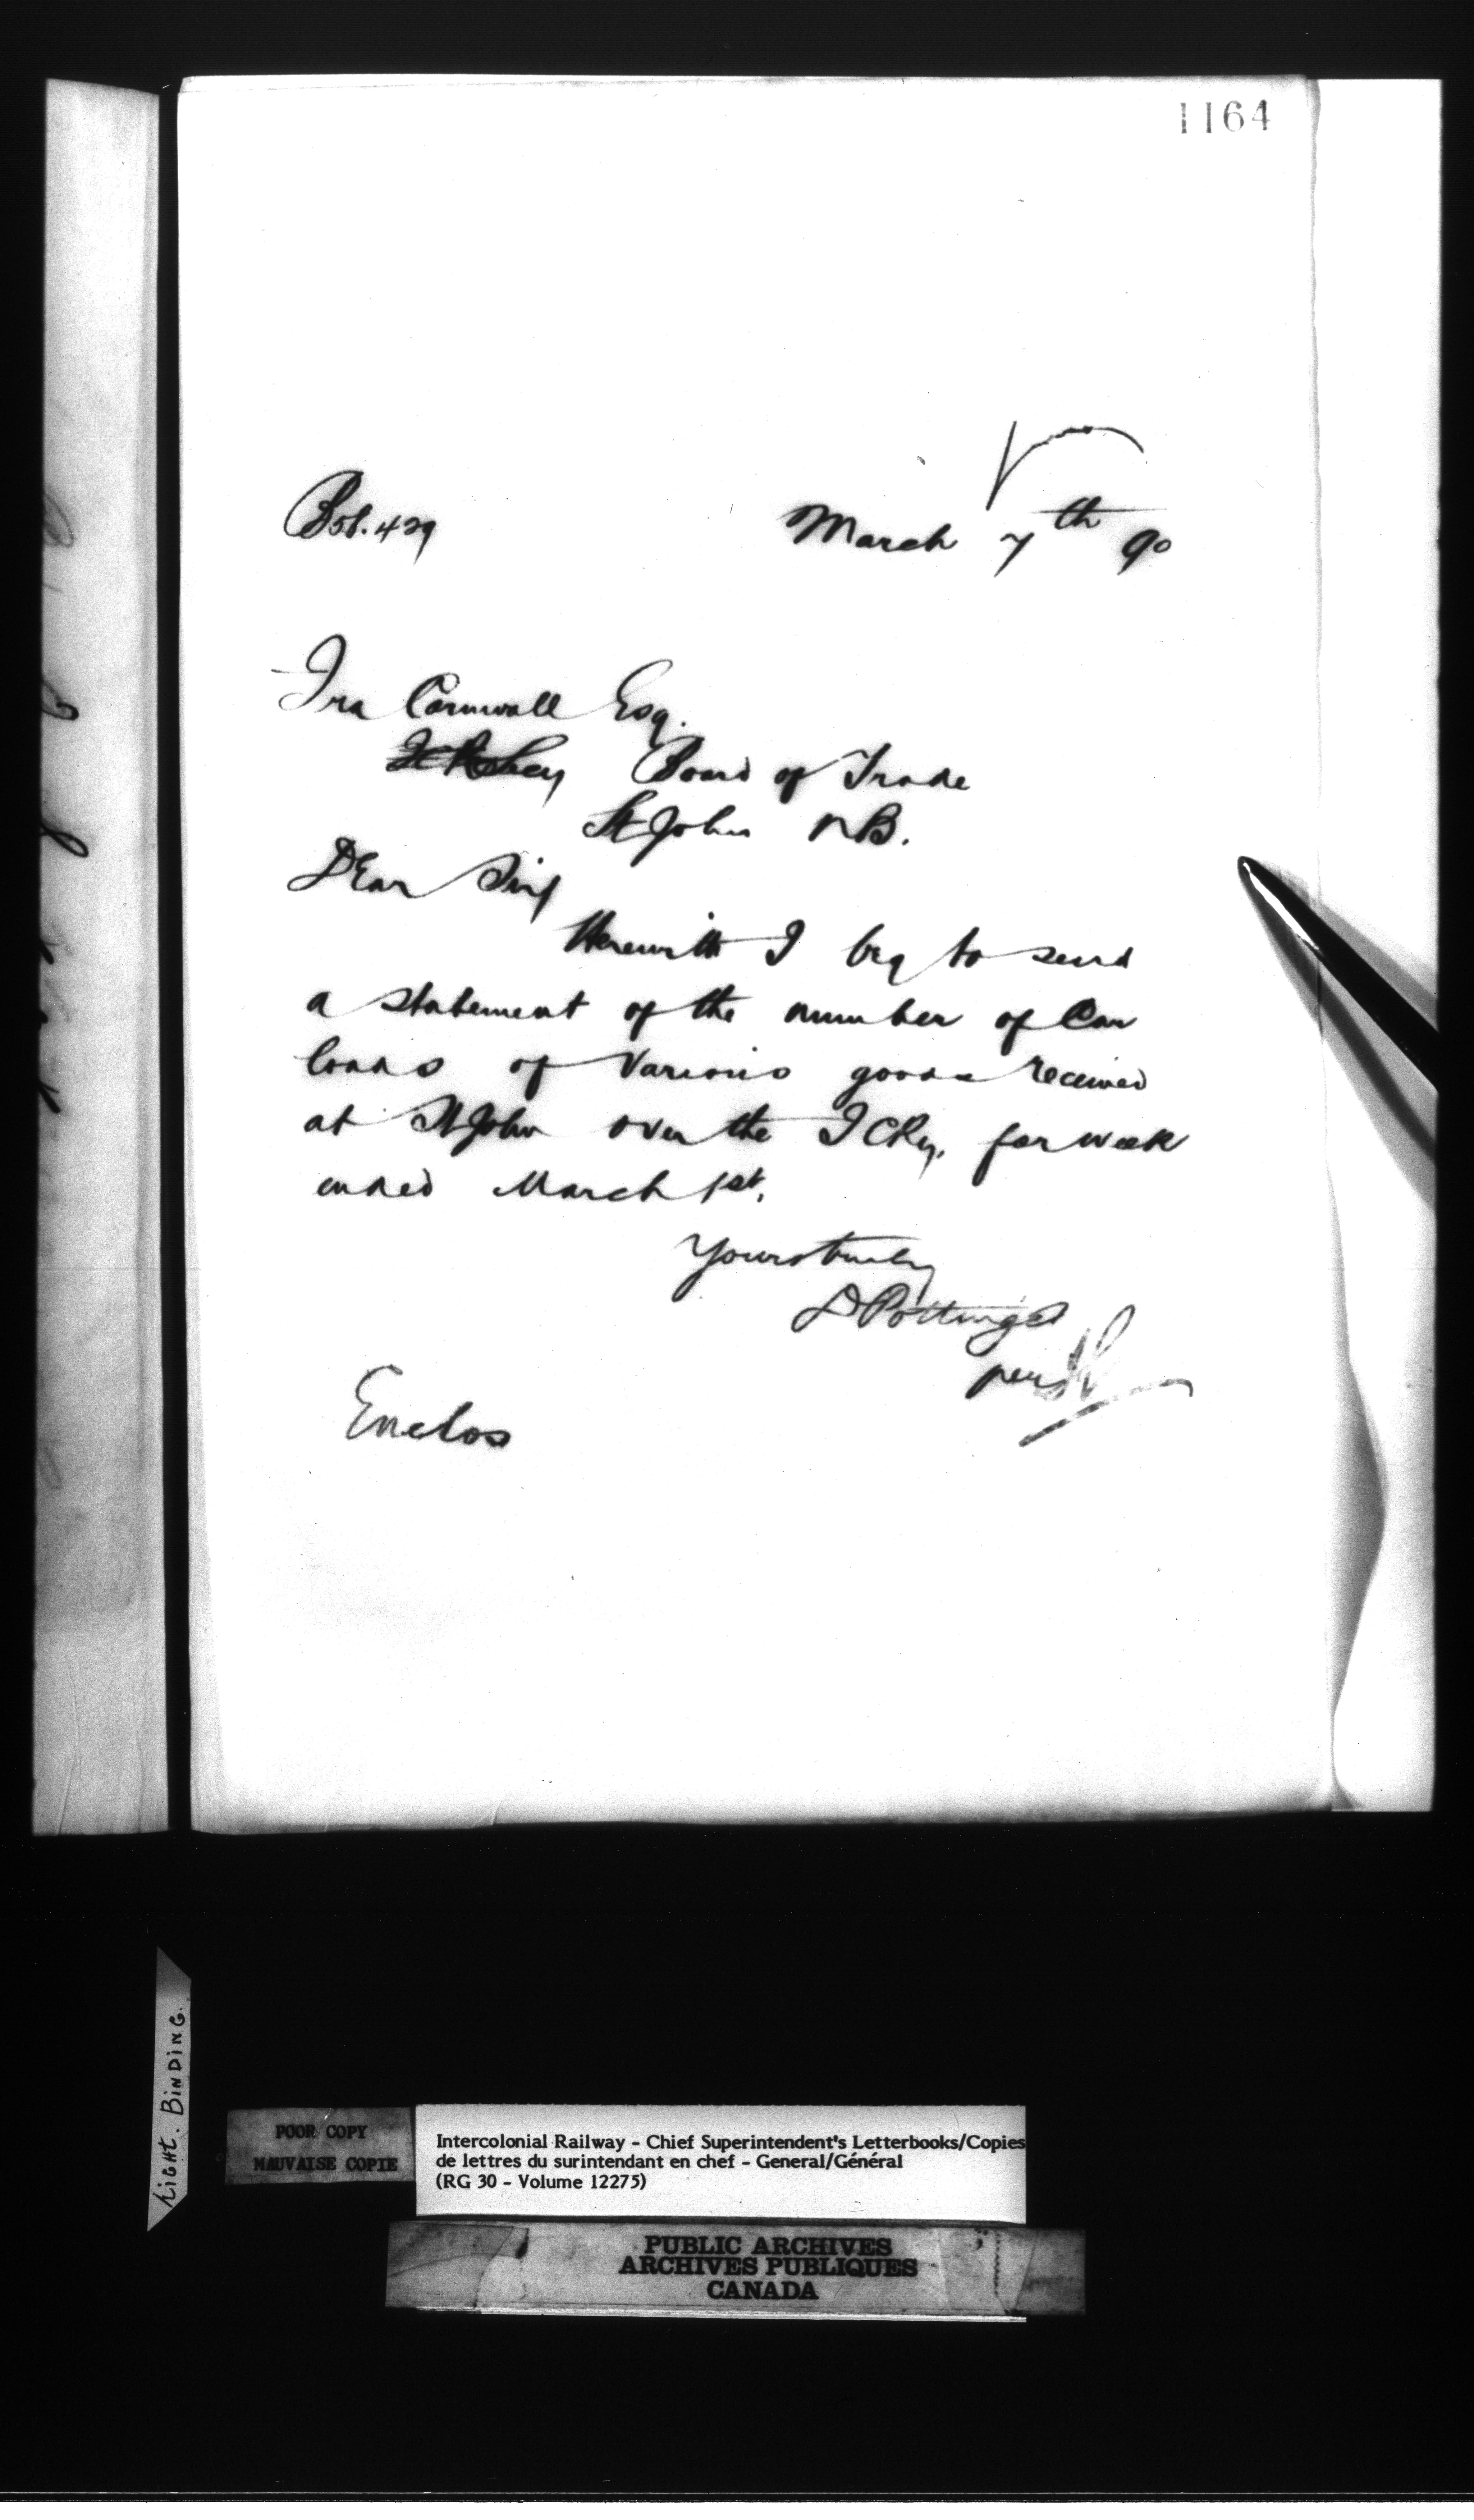 1164
B58.429 March 7th 90
Ira Cornwall Esq.
Secy Board of Trade
St John NB.
Dear Sir
Herewith I beg to send
a statement of the number of Car
loads of various goods received
at St John over the ICRy. for week
ended March 1st.
Yours truly
D Pottinger
per
Enclos
Tight. BINDING.
POOR COPY
MAUVAISE COPIE
Intercolonial Railway - Chief Superintendent's Letterbooks/Copies
de lettres du surintendant en chef - General/Général
(RG 30 - Volume 12275)
PUBLIC ARCHIVES
ARCHIVES PUBLIQUES
CANADA